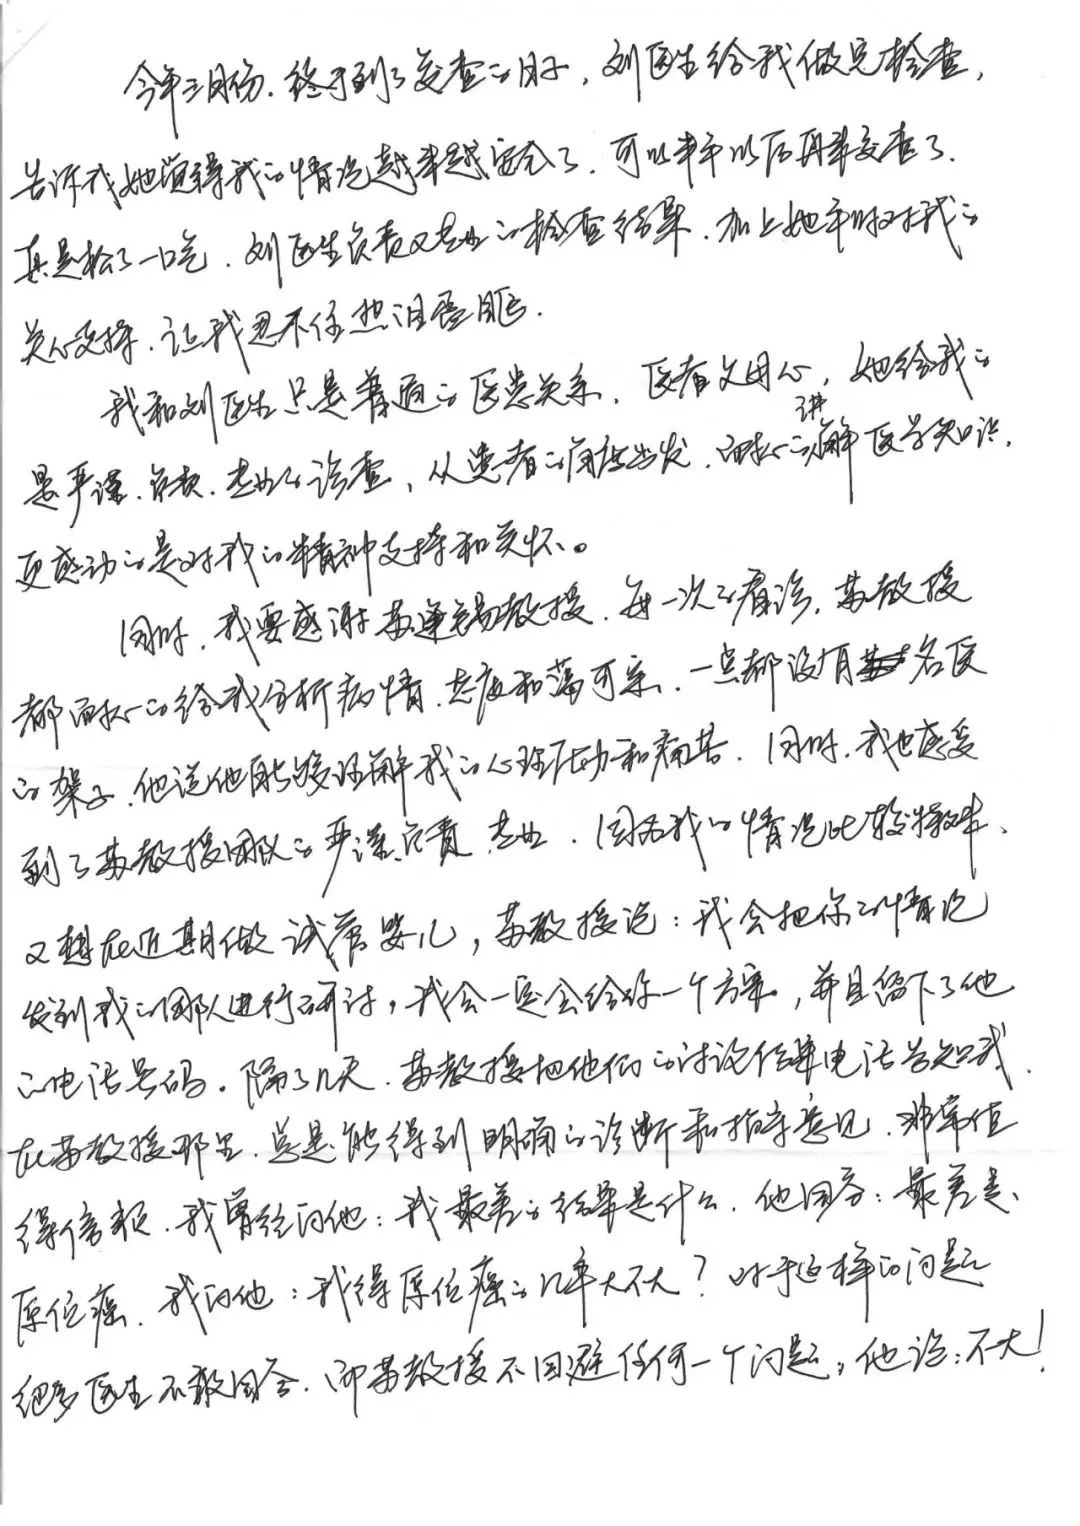 今年三月份，终于到了复查的日子，刘医生给我做完检查，
告诉我她觉得我的情况越来越安全了，可以半年以后再来复查了，
真是松了一口气，刘医生负责又专业的检查结果，加上她平时对我的
关心支持，让我忍不住热泪盈眶。
我和刘医生只是普通的医患关系，医者父母心，她给我的
是严谨、负责、专业的诊查，从患者的角度出发，耐心的讲解医学知识，
更感动的是对我的精神支持和关怀。
同时，我要感谢苏逢锡教授，每一次的看诊，苏教授
都耐心的给我分析病情，态度和蔼可亲，一点都没有名医
的架子，他说他能够理解我的心理活动和痛苦，同时，我也感受
到了苏教授团队的严谨、负责、专业，因为我的情况比较特殊，
又想在近期做试管婴儿，苏教授说：我会把你的情况
发到我的团队进行研讨，我会一定会给你一个方案，并且留下了他
的电话号码。隔了几天，苏教授把他们的讨论结果电话告知我，
在苏教授那里，总是能得到明确的诊断和指导意见，非常值
得信赖，我曾经问他：我最差的结果是什么，他回答：最差是，
原位癌，我问他：我得原位癌的几率大不大？对于这样的问题
很多医生不敢回答，而苏教授不回避任何一个问题，他说：不大！